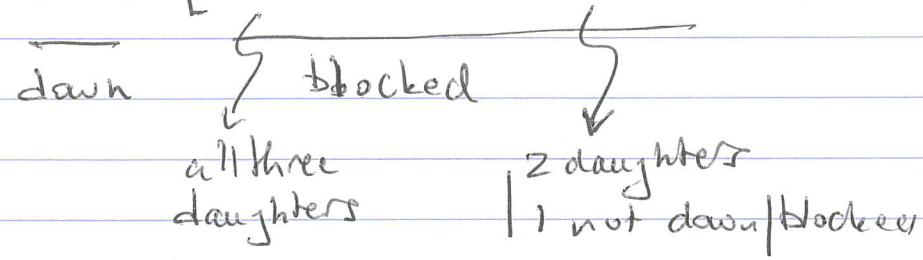 down blocked
all three 2 daughters
daughters 1 not down/blocked